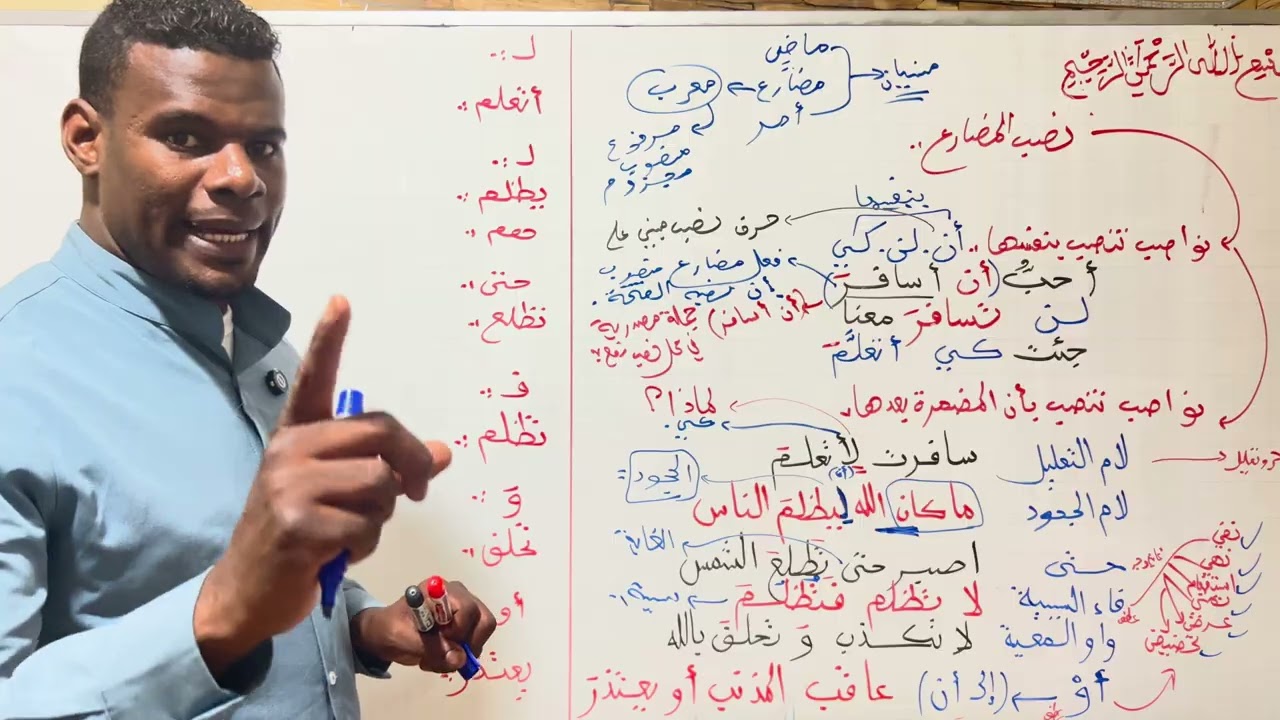 بسم الله الرحمن الرحيم
نصب المضارع..
ماضي
مضارع
أمر
مبنيان
معرب
مرفوع
منصوب
مجزوم
نواصب تنصب بنفسها.. أن. لن. كي
بنفسها
حرف نصب مبني على
أحبُّ (أن أسافرَ)
فعل مضارع منصوب
لن تسافرَ معنا
(أن أسافر) جملة مصدرية
جئت كي أتعلَّمَ
نواصب تنصب بأن المضمرة بعدها.
لماذا؟
كي.
لام التعليل سافرت لأتعلمَ
(أن)
لام الجحود ما كان الله ليظلمَ الناس
الجحود:
حتى اصبر حتى تطلعَ الشمس
الغاية
فاء السببية لا تظلم فتظلمَ
سببية..
واو المعية لا تكذب وَ تحلفَ بالله
أوْ (إلى أن) عاقب المذنب أو يعتذرَ
نفي
نهي
استفهام
تمني
عرض
تحضيض
لـ :.
أتعلم :.
لـ :.
يظلم :.
حتى :.
تطلع :.
فـ :.
تظلم :.
وَ :.
تحلف :.
أو
يعتذر